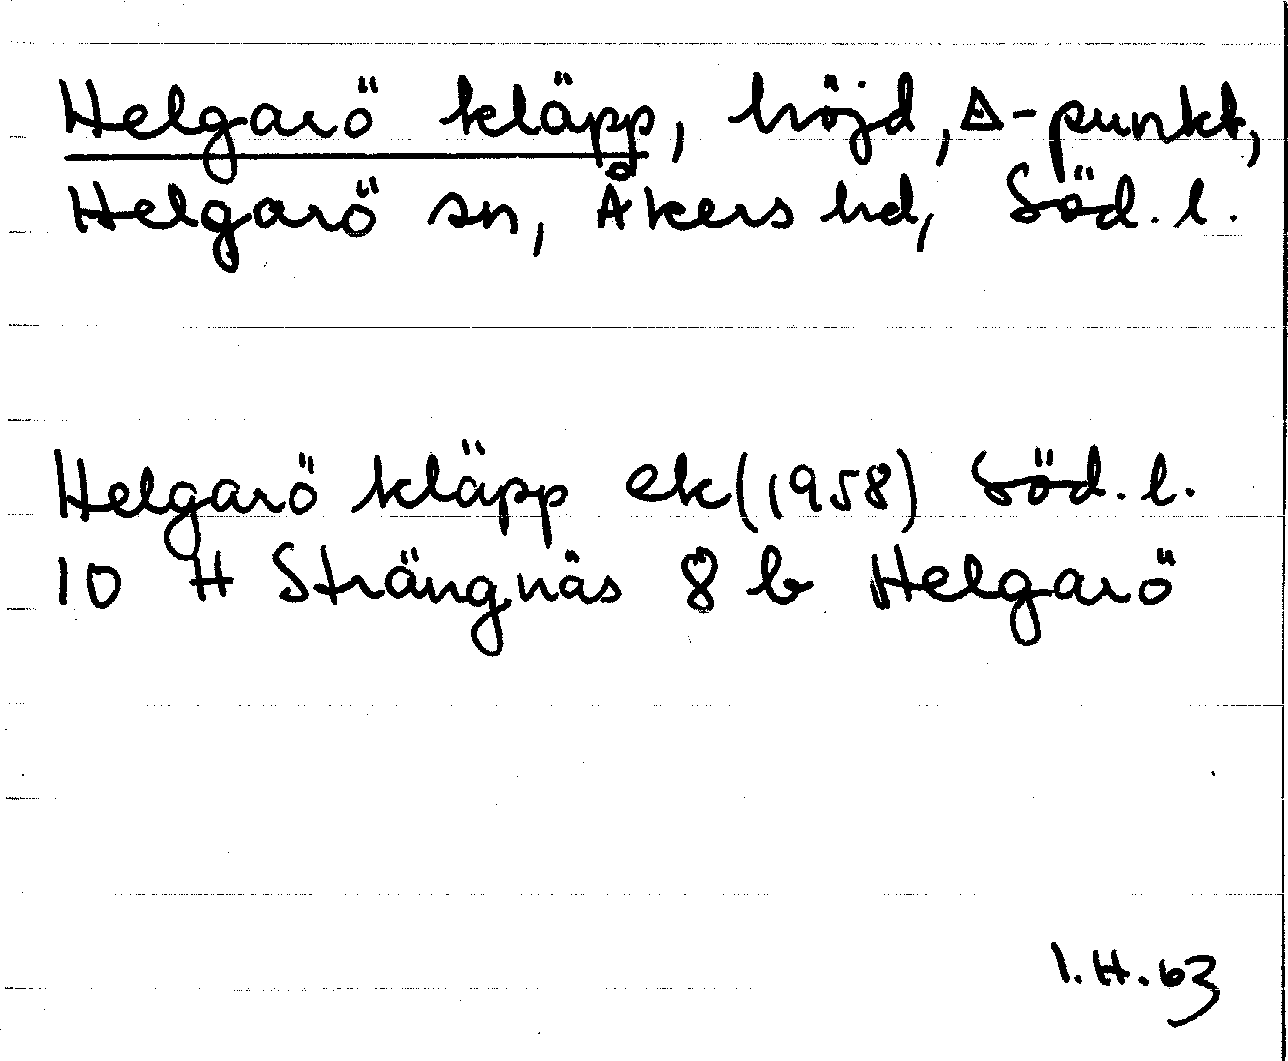 Helgarö kläpp, höjd, △-punkt,
Helgarö sn, Åkers hd, Söd. l.
Helgarö kläpp ek (1958) Söd. l.
10 H Strängnäs 8 b Helgarö
I.H.63